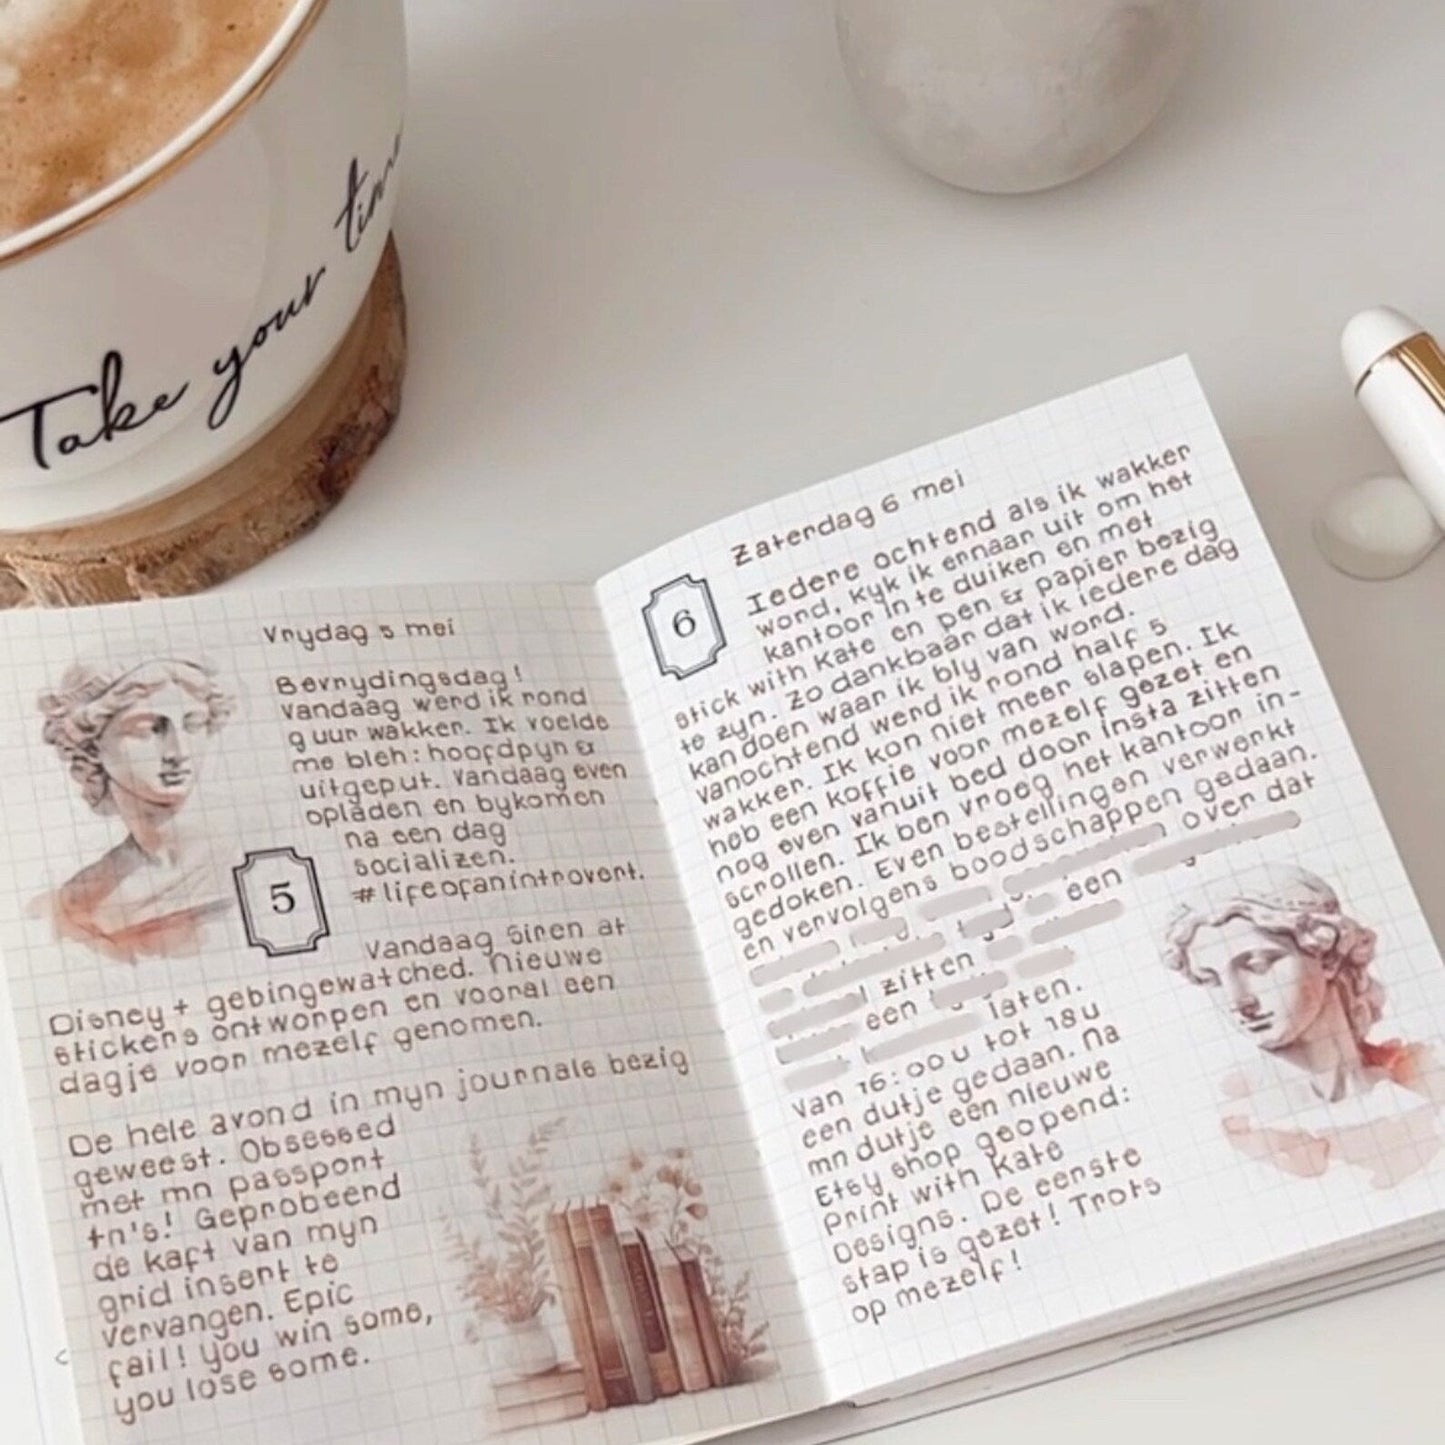 Take your time
Vrydag 5 mei
Bevrydingsdag!
Vandaag werd ik rond
9 uur wakker. Ik voelde
me bleh: hoofdpyn &
uitgeput. Vandaag even
opladen en bykomen
na een dag
socializen.
#lifeofanintrovert.
5
Vandaag Siren at
Disney+ gebingewatched. Nieuwe
stickers ontworpen en vooral een
dagje voor mezelf genomen.
De hele avond in myn journals bezig
geweest. Obsessed
met mn passport
tn's! Geprobeerd
de kaft van myn
grid insert te
vervangen. Epic
fail! You win some,
you lose some.
Zaterdag 6 mei
6
Iedere ochtend als ik wakker
word, kyk ik ernaar uit om het
kantoor in te duiken en met
Stick with Kate en pen & papier bezig
te zyn. Zo dankbaar dat ik iedere dag
kan doen waar ik bly van word.
Vanochtend werd ik rond half 5
wakker. Ik kon niet meer slapen. Ik
heb een koffie voor mezelf gezet en
nog even vanuit bed door insta zitten
scrollen. Ik ben vroeg het kantoor in-
gedoken. Even bestellingen verwerkt
en vervolgens boodschappen gedaan.
over dat
een
zitten
een
laten.
Van 16:00 u tot 18 u
een dutje gedaan. Na
mn dutje een nieuwe
Etsy shop geopend:
Print with Kate
Designs. De eerste
stap is gezet! Trots
op mezelf!